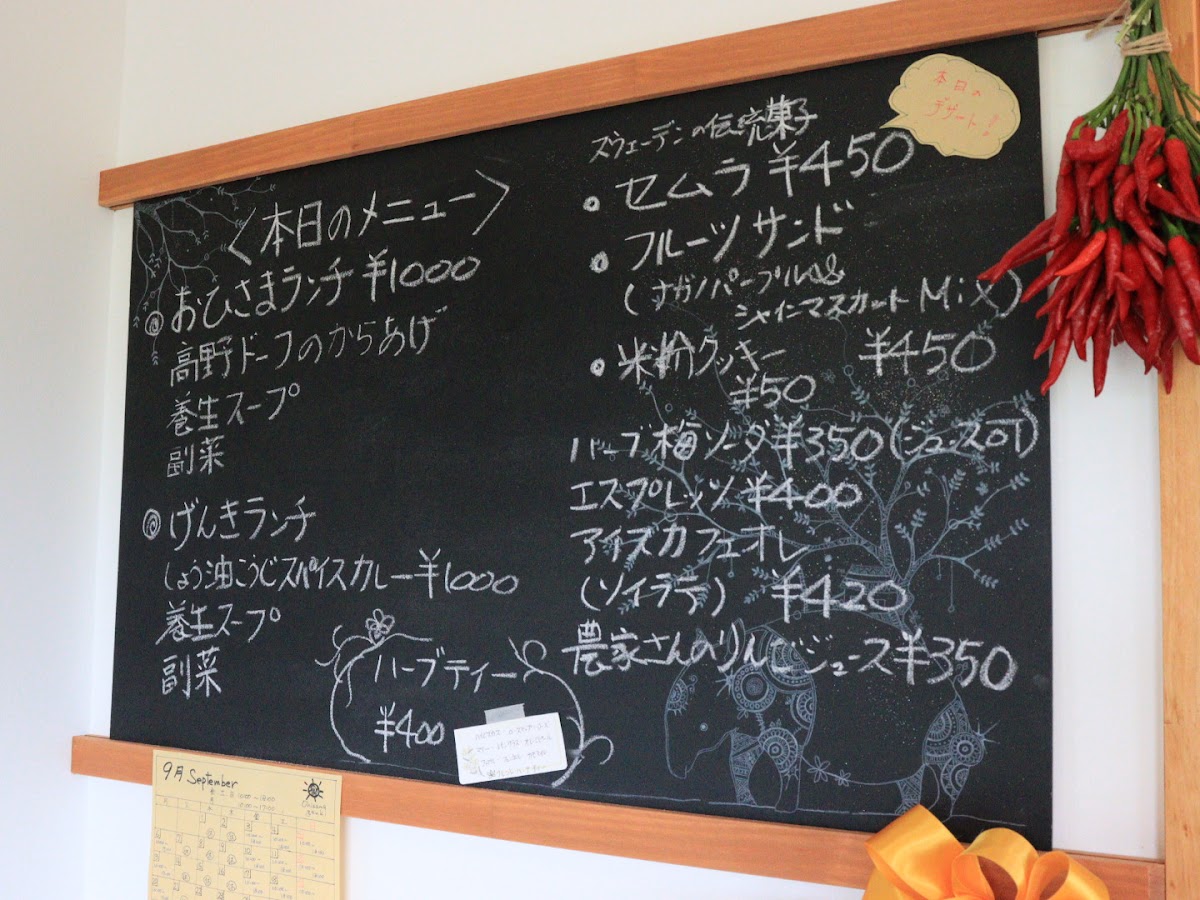 〈本日のメニュー〉
おひさまランチ ¥1000
高野ドーフのからあげ
養生スープ
副菜
げんきランチ
しょう油こうじスパイスカレー ¥1000
養生スープ
副菜
ハーブティー
¥400
本日の
デザート!
スウェーデンの伝統菓子
・セムラ ¥450
・フルーツサンド
(ナガノパープル&
シャインマスカット Mix)
¥450
・米粉クッキー
¥50
ハーブ梅ソーダ ¥350 (ジュース可)
エスプレッソ ¥400
アイスカフェオレ
(ソイラテ) ¥420
農家さんのりんごジュース ¥350
9月 September